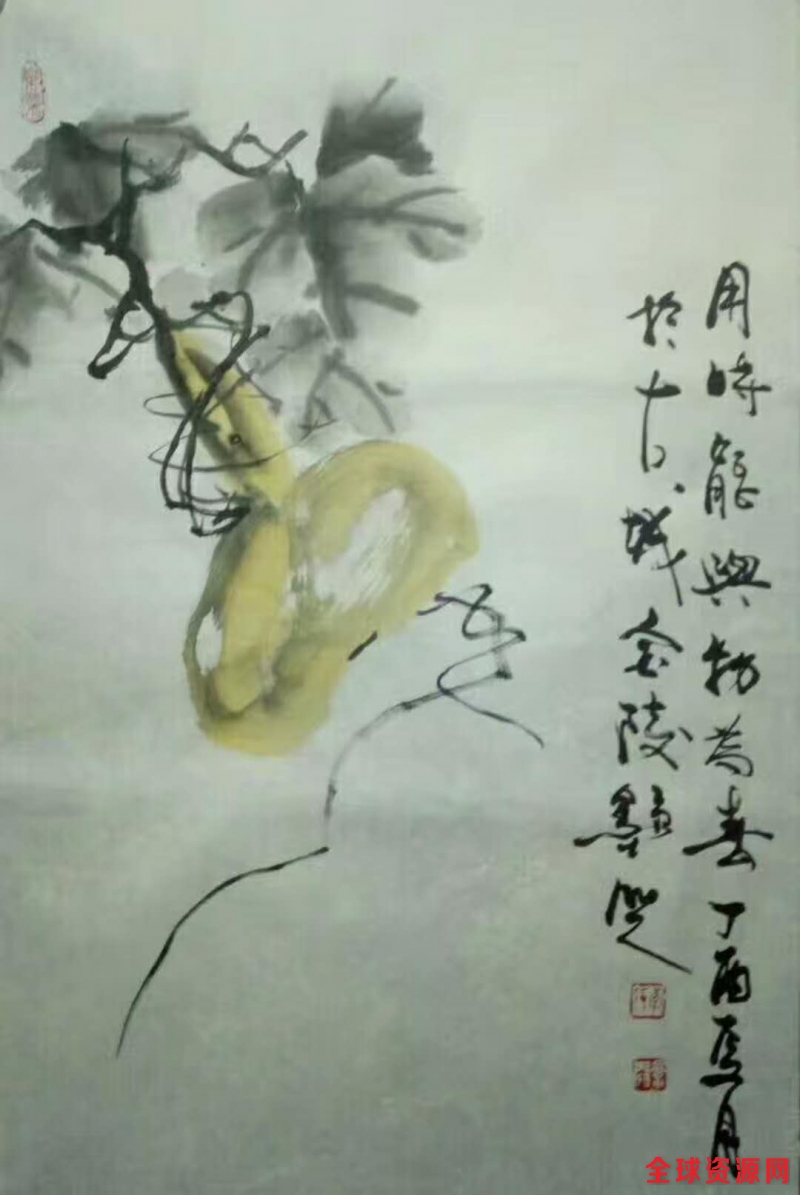 用時能與物為春丁酉夏月
於古城金陵
全球资源网